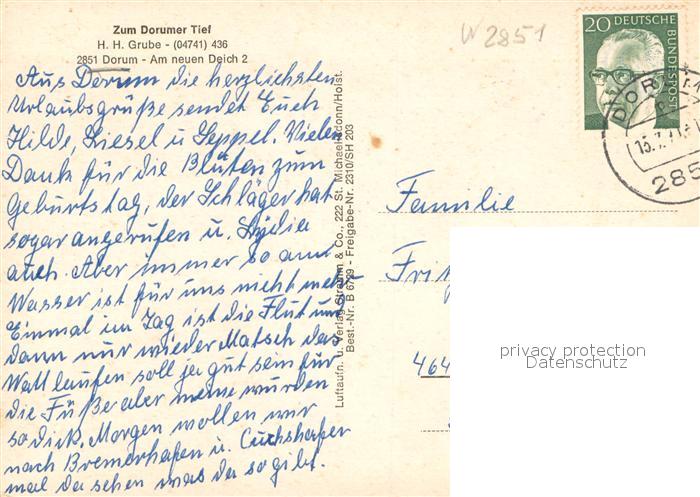 Zum Dorumer Tief
H. H. Grube - (04741) 436
2851 Dorum - Am neuen Deich 2
Aus Dorum die herzlichsten
Urlaubsgrüße sendet Euch
Hilde, Liesel u Seppel. Vielen
Dank für die Blüten zum
Geburtstag, der Schläger hat
sogar angerufen u. Lydia
auch. Aber immer so am
Wasser ist für uns nicht mehr
Einmal im Tag ist die Flut und
dann nur wieder Matsch das
Watt laufen soll ja gut sein für
die Füße aber meine wurden
so dick. Morgen wollen wir
nach Bremerhafen u. Cuchshafen
mal da sehen was da so gibt.
Luftaufn. u. Verlag Strahm & Co., 222 St. Michaelisdonn/Holst.
Best.-Nr. B 6729 - Freigabe-Nr. 2310/SH 203
W 2851
20 DEUTSCHE
BUNDESPOST
DORUM
15.7.71
285
Familie
464
privacy protection
Datenschutz